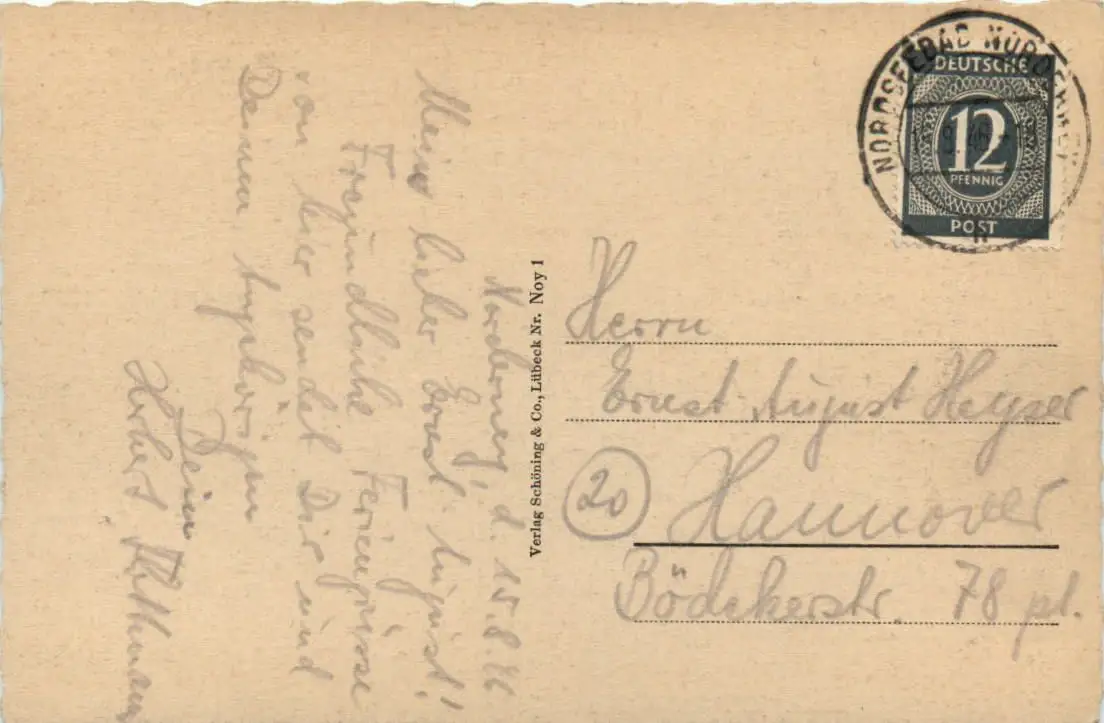 Norderney, d. 15.8.46
Mein lieber Ernst-August!
Freundliche Feriengrüsse
von hier sendet Dir und
Deinen Angehörigen
Dein
Herbert
Verlag Schöning & Co., Lübeck Nr. Noy 1
NORDSEEBAD NORDERNEY
8.46
DEUTSCHE
12
PFENNIG
POST
Herrn
Ernst August Heyser
20 Hannover
Bödekerstr. 78 pt.